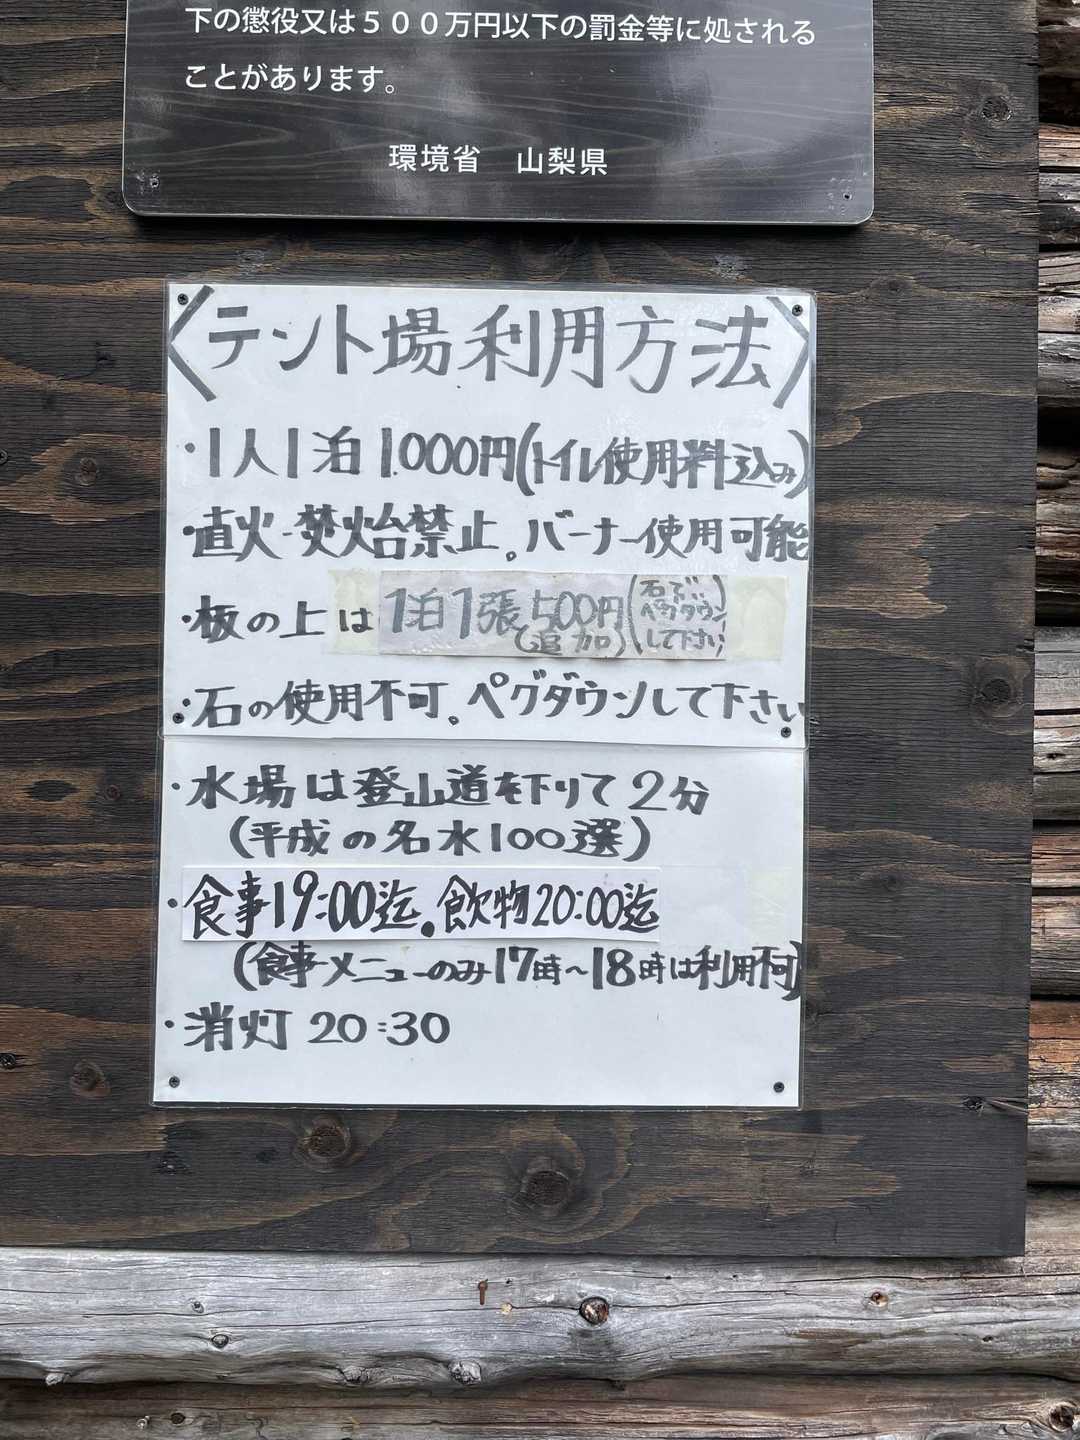 下の懲役又は５００万円以下の罰金等に処される
ことがあります。
環境省　山梨県
〈テント場利用方法〉
・1人1泊1.000円(トイレ使用料込み)
・直火・焚火台禁止。バーナー使用可能
・板の上は1泊1張500円(追加)(石でペグダウンして下さい)
・石の使用不可。ペグダウンして下さい
・水場は登山道を下りて2分
(平成の名水100選)
・食事19:00迄。飲物20:00迄
(食事メニューのみ17時～18時は利用不可)
・消灯 20:30